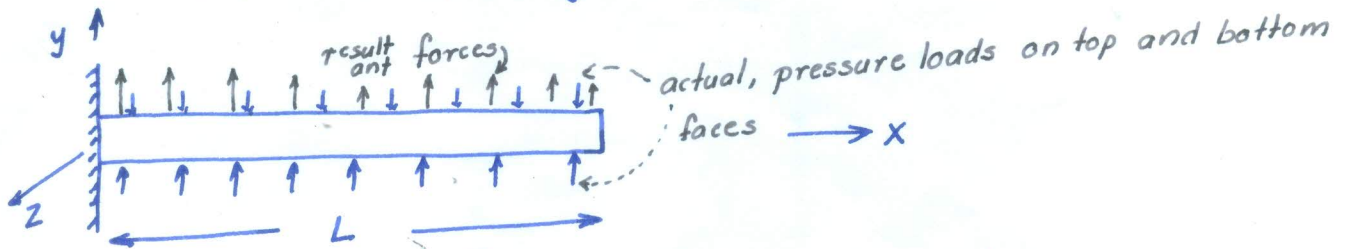 y
result
ant forces
actual, pressure loads on top and bottom
faces
X
Z
L